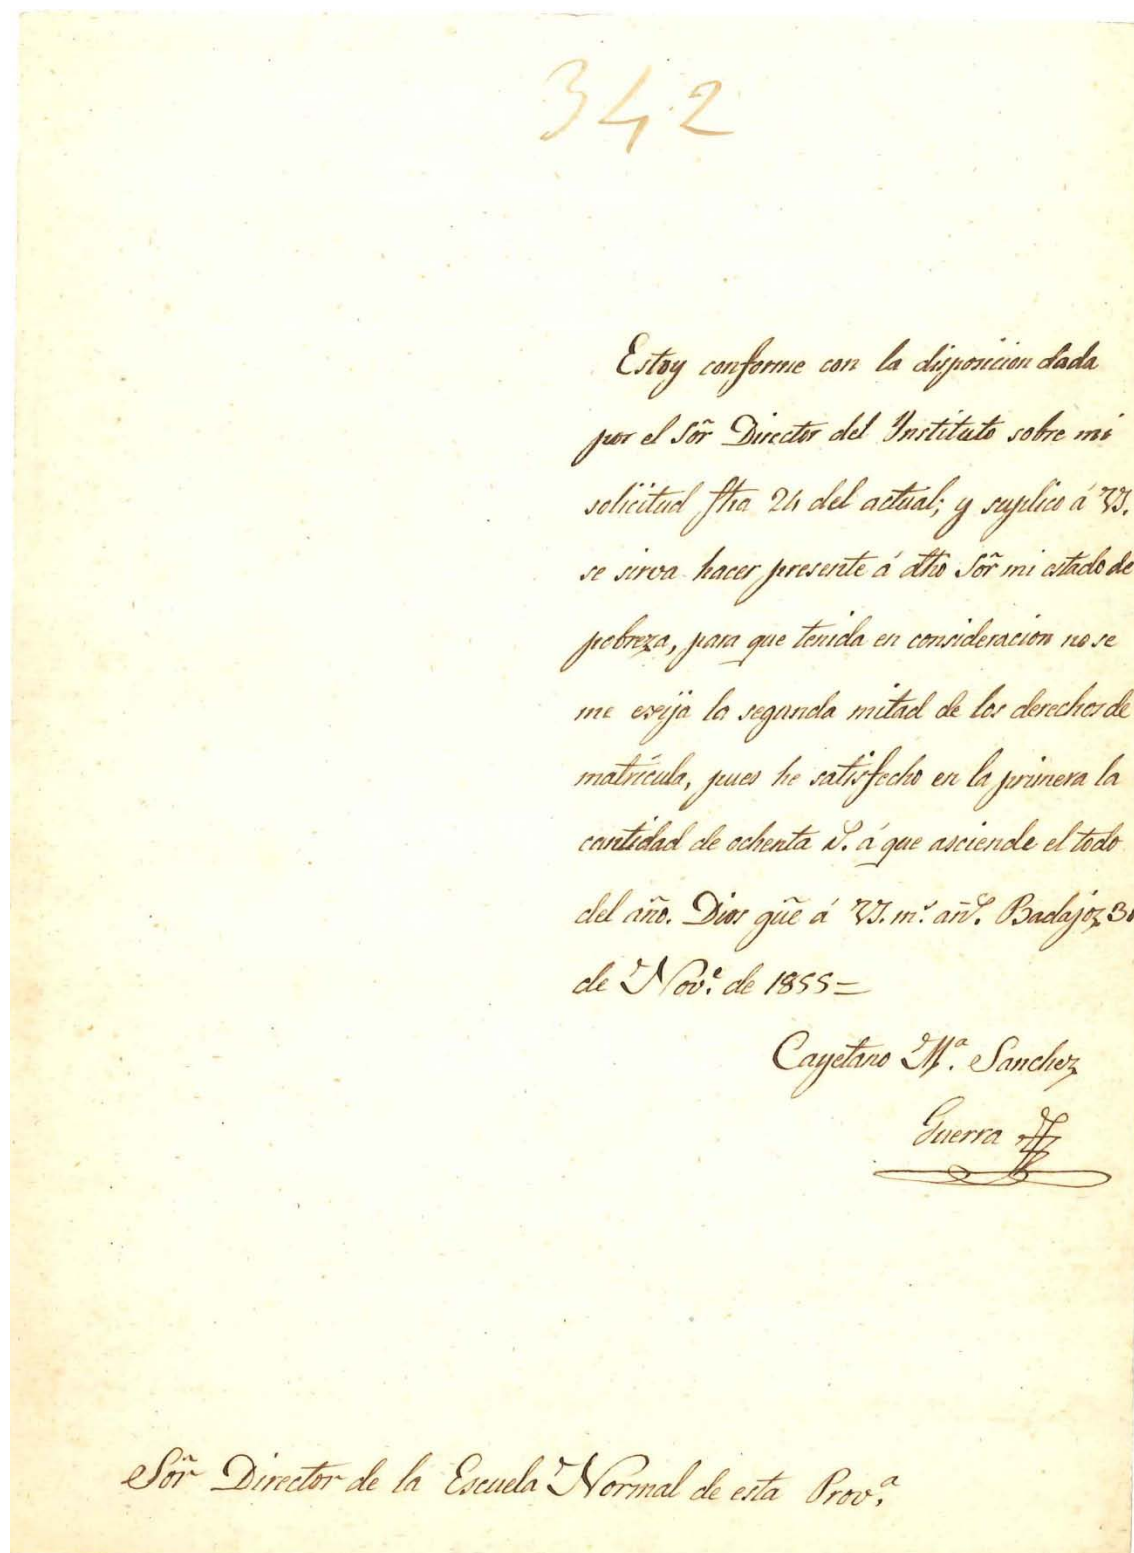 342
Estoy conforme con la disposicion dada
por el Sõr Director del Ynstituto sobre mi
solicitud fha 24 del actual; y suplico á V.
se sirva hacer presente á dho Sõr mi estado de
pobreza, para que tenida en consideracion no se
me exija la segunda mitad de los derechos de
matrícula, pues he satisfecho en la primera la
cantidad de ochenta r.ˢ á que asciende el todo
del año. Dios gũe á V. m.ˢ añ.ˢ Badajoz 30
de Nov.ᵉ de 1855=
Cayetano M.ª Sanchez
Guerra
Sõr Director de la Escuela Normal de esta Prov.ª